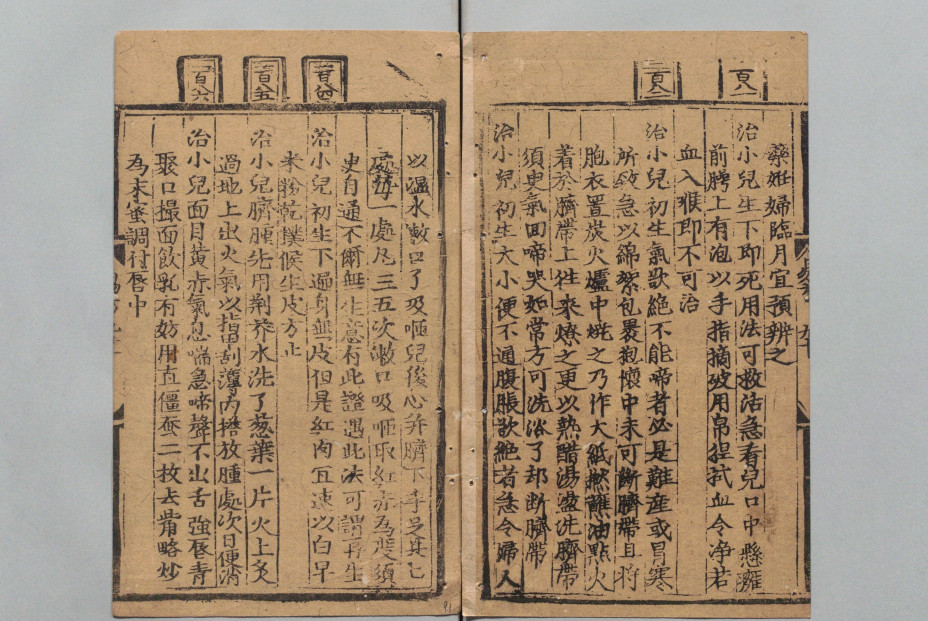 藥姙婦臨月宜預辨之
治小兒生下即死用法可救活急看兒口中懸癰
前腭上有泡以手指摘破用帛揑拭血令净若
血入喉即不可治
治小兒初生氣欲絶不能啼者必是難産或冒寒
所致急以綿絮包裹抱懷中未可断臍帶且将
胞衣置炭火爐中燒之乃作大紙撚蘸油點火
着於臍帶上徃來燎之更以熱醋湯盪洗臍帶
須臾氣囬啼哭如常方可洗浴了却断臍帶
治小兒初生大小便不通腹脹欲絶者急令婦人
以温水漱口了吸咂兒後心并臍下手足其七
處每一處凡三五次漱口吸咂取紅赤為度須
臾自通不爾無生意有此證遇此法可謂再生
治小兒初生下遍身無皮但是紅肉宜速以白早
米粉乾撲候生皮方止
治小兒臍腫先用荆芥水洗了葱葉一片火上炙
過地上出火氣以指甲刮薄内搭放腫處次日便消
治小兒面目黄赤氣息喘急啼聲不出舌強唇青
聚口撮面飲乳有妨用直僵蚕二枚去觜略炒
為末蜜調付唇中